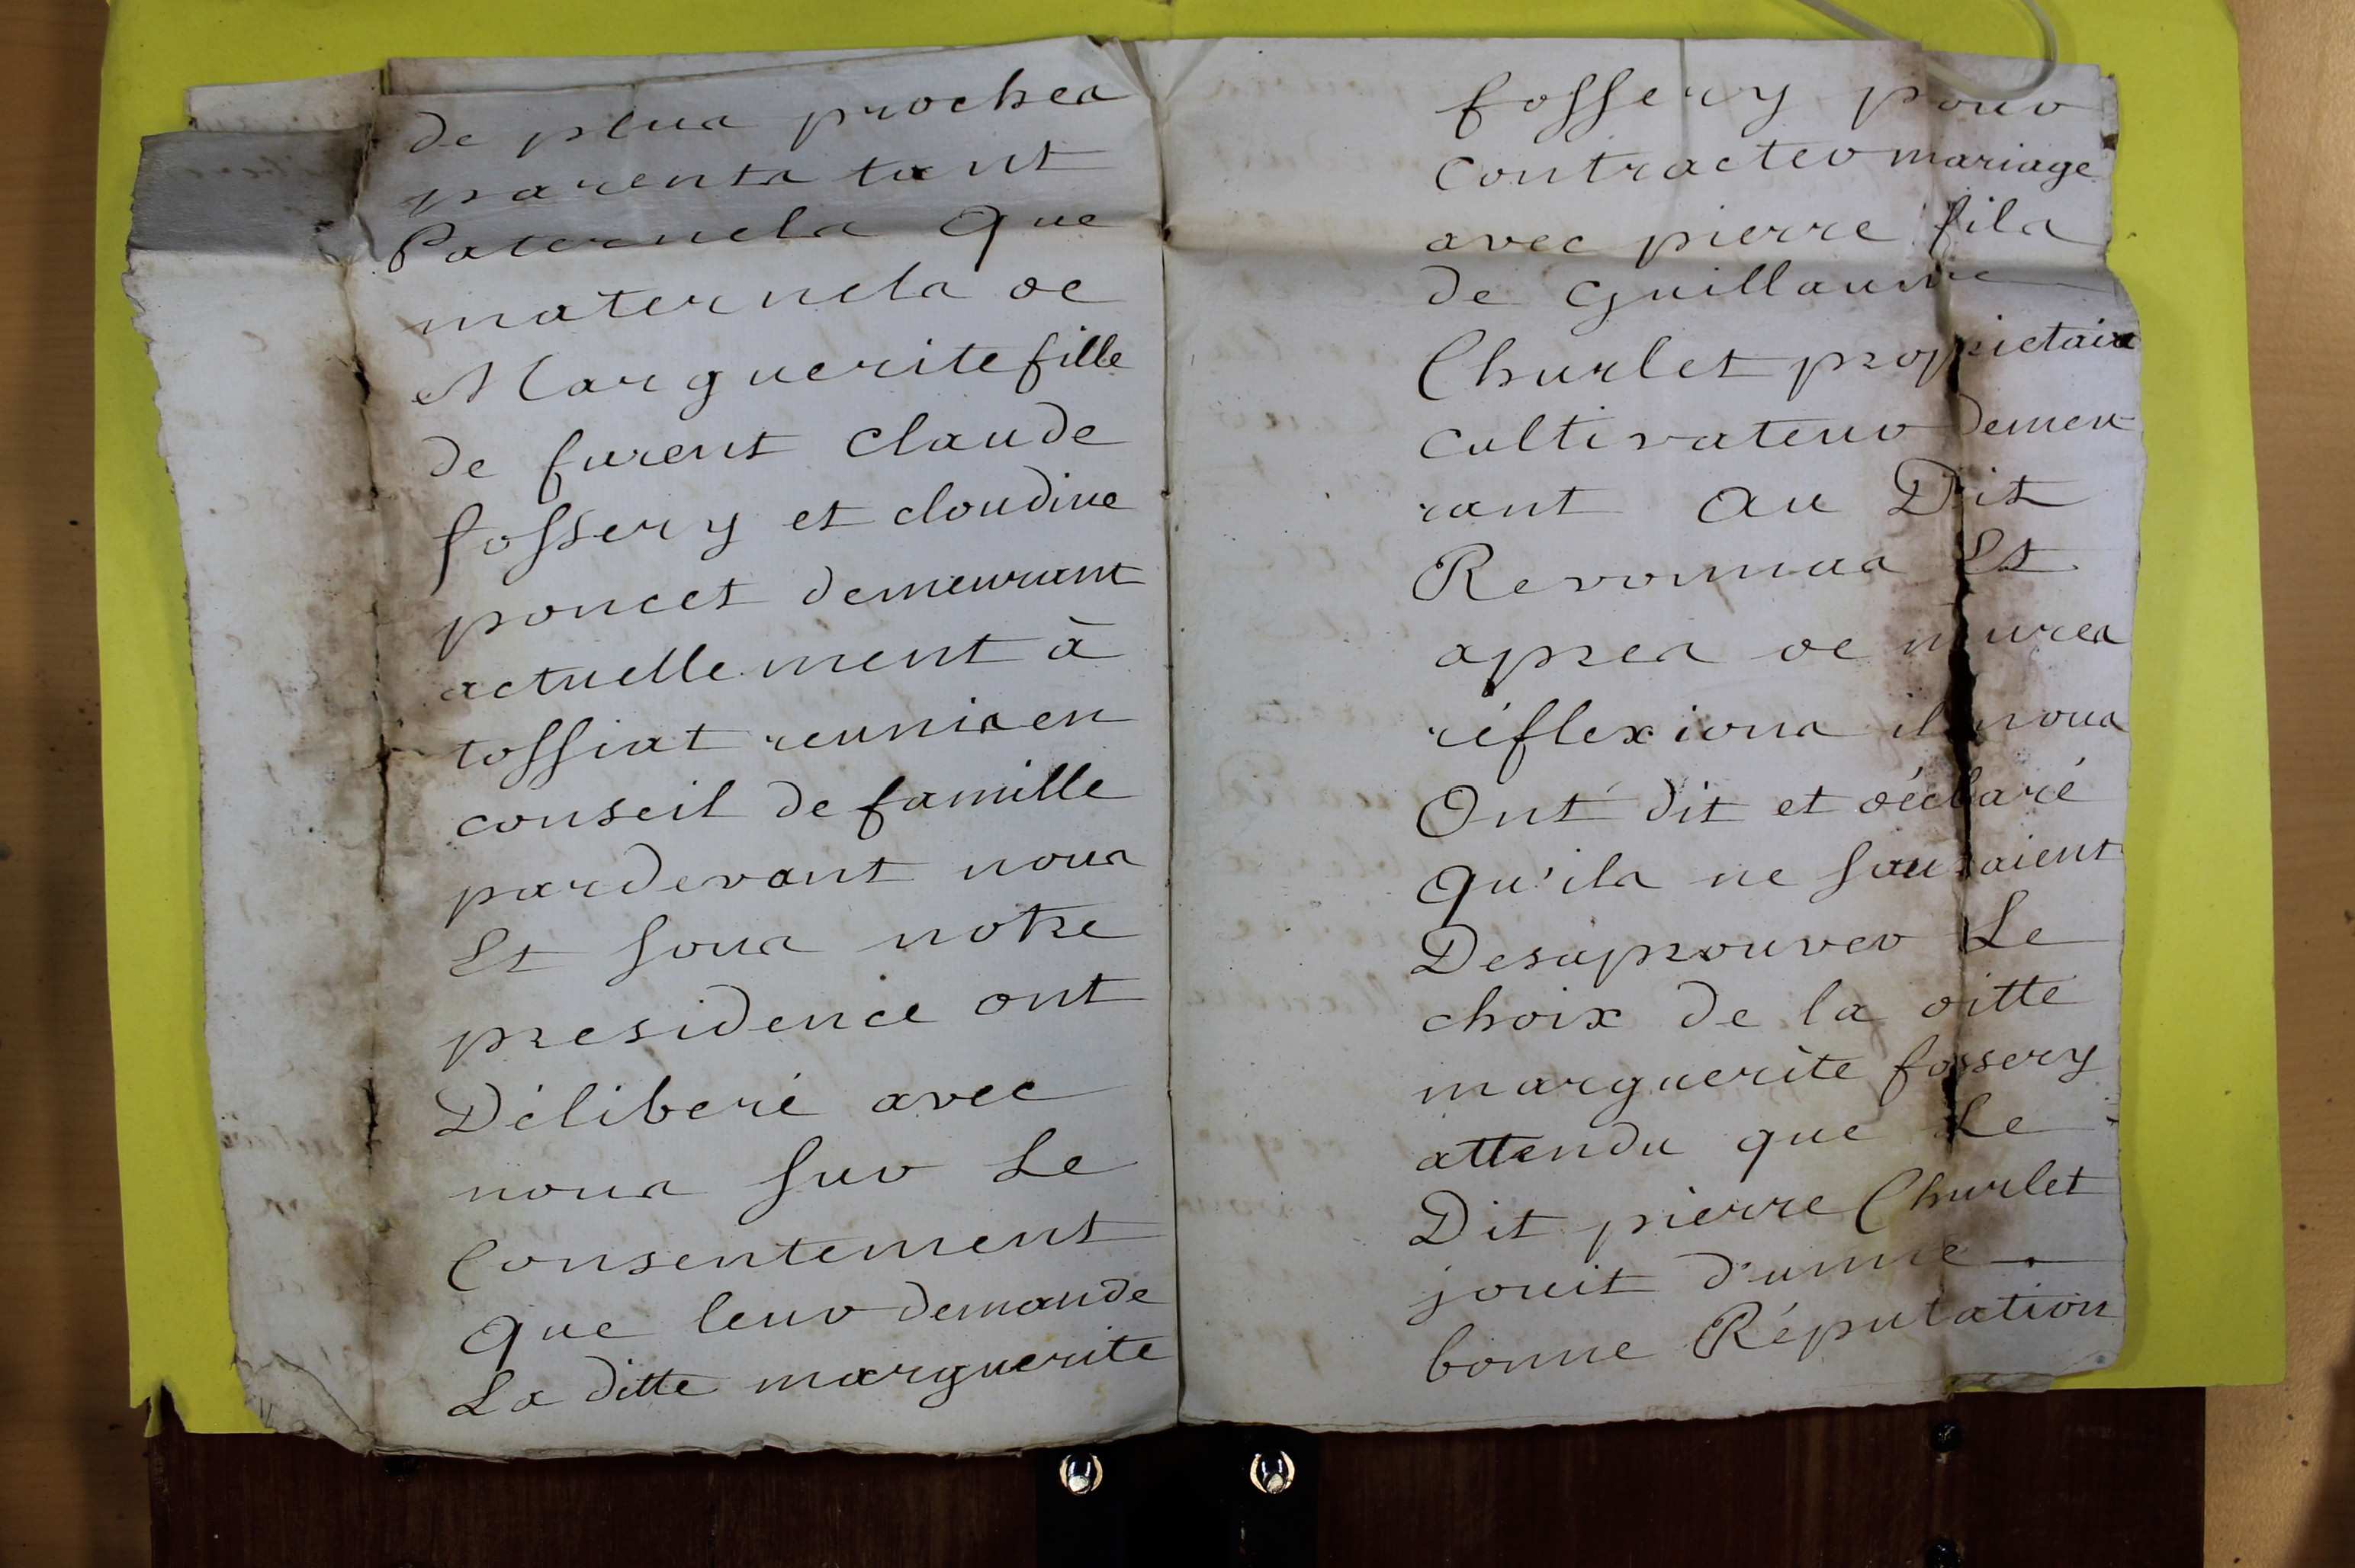 de plus proches
parents tant
Paternels que
maternels de
Marguerite fille
de furent claude
fossery et cloudine
poncet demeurant
actuellement à
tossiat reunis en
conseil de famille
pardevant nous
Et sous notre
presidence ont
Déliberé avec
nous sur Le
Consentement
que leur demande
La ditte marguerite
fossery pour
contracter mariage
avec pierre fils
de Guillaume
Churlet propietaire
cultivateur demeu
rant au Dit
Revonnas Et
apres de mures
réflexions ils nous
Ont dit et déclaré
qu'ils ne sauraient
Desaprouver Le
choix de la ditte
marguerite fossery
attendu que Le
Dit pierre Churlet
jouit d'unne
bonne Réputation